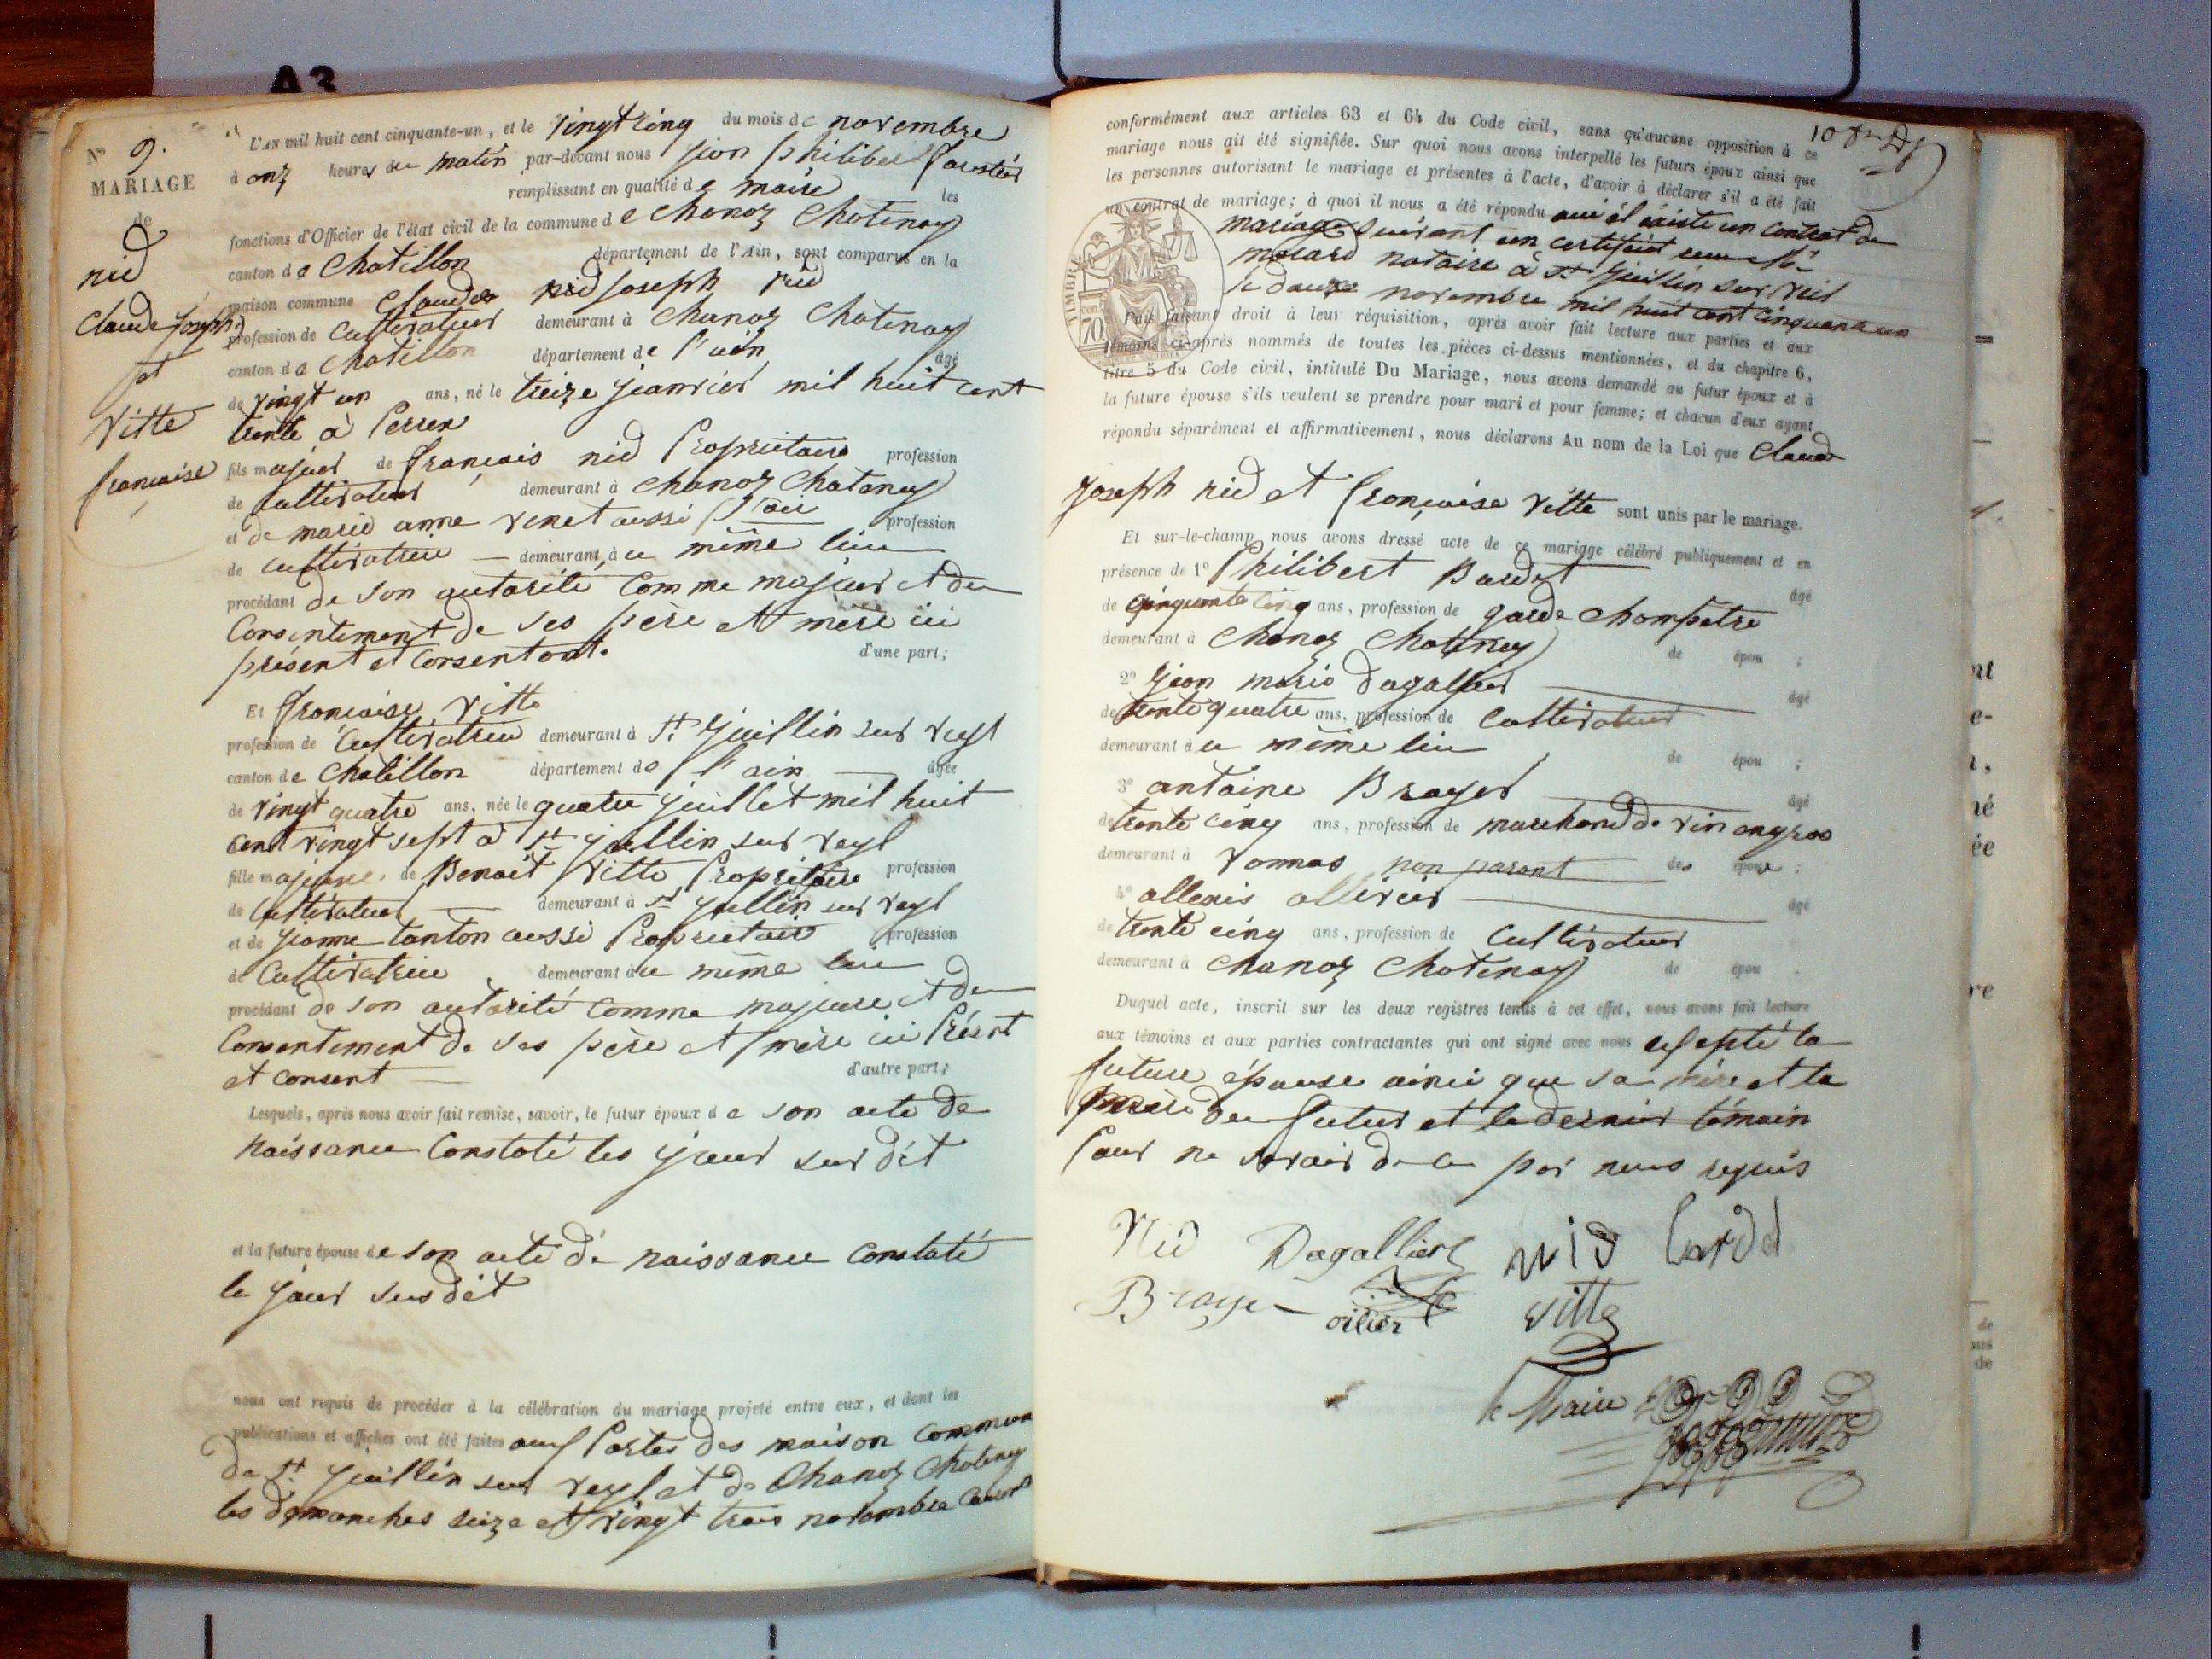 A3
N° 9.
MARIAGE
de
nid
Claude Joseph
et
Vitte
françoise
L'AN mil huit cent cinquante-un, et le vingt cinq du mois de novembre
à onz heures du matin par-devant nous jean philibert
remplissant en qualité de maire les
fonctions d'Officier de l'état civil de la commune de Chanoz Chatenay
canton de Chatillon département de l'Ain, sont comparus en la
maison commune Claude nid joseph nid
profession de Cultivateur demeurant à Chanoz Chatenay
canton de Chatillon département de l'ain âgé
de vingt un ans, né le treize janvier mil huit cent
trente à Perrex
fils majeur de françois nid Propriétaire profession
de Cultivateur demeurant à Chanoz Chatenay
et de marie anne venet aussi profession
de Cultivatrice demeurant à ce même lieu
procédant de son autorité Comme majeur et du
Consentement de ses père et mère ici
présent et Consentant. d'une part;
Et françoise Vitte
profession de Cultivatrice demeurant à St juillin sur veyl
canton de Chatillon département de l'ain âgée
de vingt quatre ans, née le quatre juillet mil huit
cent vingt sept à St jullin sur veyl
fille majeure de Benoit Vitte Propriétaire profession
de Cultivateur demeurant à St jullin sur veyl
et de jeanne tanton aussi Propriétaire profession
de Cultivatrice demeurant à ce même lieu
procédant de son autorité comme majeure et du
Consentement de ses père et mère ici Présent
et consent d'autre part;
Lesquels, après nous avoir fait remise, savoir, le futur époux de son acte de
naissance Constaté les jour sur dit
et la future épouse de son acte de naissance Constaté
le jour sus dit
nous ont requis de procéder à la célébration du mariage projeté entre eux, et dont les
publications et affiches ont été faites aux Portes des maison Commune
de St juillin sur veyl et de Chanoz Chatenay
les dimanches seize et vingt trois novembre courant
10
conformément aux articles 63 et 64 du Code civil, sans qu'aucune opposition à ce
mariage nous ait été signifiée. Sur quoi nous avons interpellé les futurs époux ainsi que
les personnes autorisant le mariage et présentes à l'acte, d'avoir à déclarer s'il a été fait
un contrat de mariage; à quoi il nous a été répondu oui il existe un contrat de
mariage suivant un certificat
notaire à St juillin sur veil
le douze novembre mil huit cent cinquante un
TIMBRE
70
Puis faisant droit à leur réquisition, après avoir fait lecture aux parties et aux
témoins ci-après nommés de toutes les pièces ci-dessus mentionnées, et du chapitre 6,
titre 5 du Code civil, intitulé Du Mariage, nous avons demandé au futur époux et à
la future épouse s'ils veulent se prendre pour mari et pour femme; et chacun d'eux ayant
répondu séparément et affirmativement, nous déclarons Au nom de la Loi que Claude
Joseph nid et françoise Vitte sont unis par le mariage.
Et sur-le-champ nous avons dressé acte de ce mariage célébré publiquement et en
présence de 1° Philibert Bardet âgé
de cinquante cinq ans, profession de garde Champetre
demeurant à Chanoz Chatenay de épou ;
2° jean marie dagallier âgé
de trente quatre ans, profession de Cultivateur
demeurant à ce même lieu de épou ;
3° antoine Broyer âgé
de trente cinq ans, profession de marchand de vin en gros
demeurant à Vonnas non parent des époux ;
4° allexis ollivier âgé
de trente cinq ans, profession de Cultivateur
demeurant à Chanoz Chatenay de épou .
Duquel acte, inscrit sur les deux registres tenus à cet effet, nous avons fait lecture
aux témoins et aux parties contractantes qui ont signé avec nous la
future épouse ainsi que sa mère et la
mère du futur et le dernier témoin
Pour ne savoir de ce par nous requis
Nid Dagallier nid bardet
Broyer olier vitte
le Maire